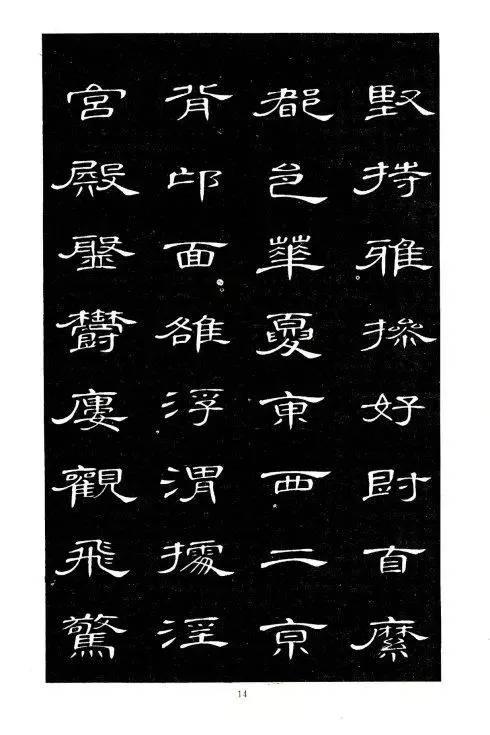 堅持雅操好爵自縻
都邑華夏東西二京
背邙面雒浮渭據涇
宮殿盤鬱廔觀飛驚
14